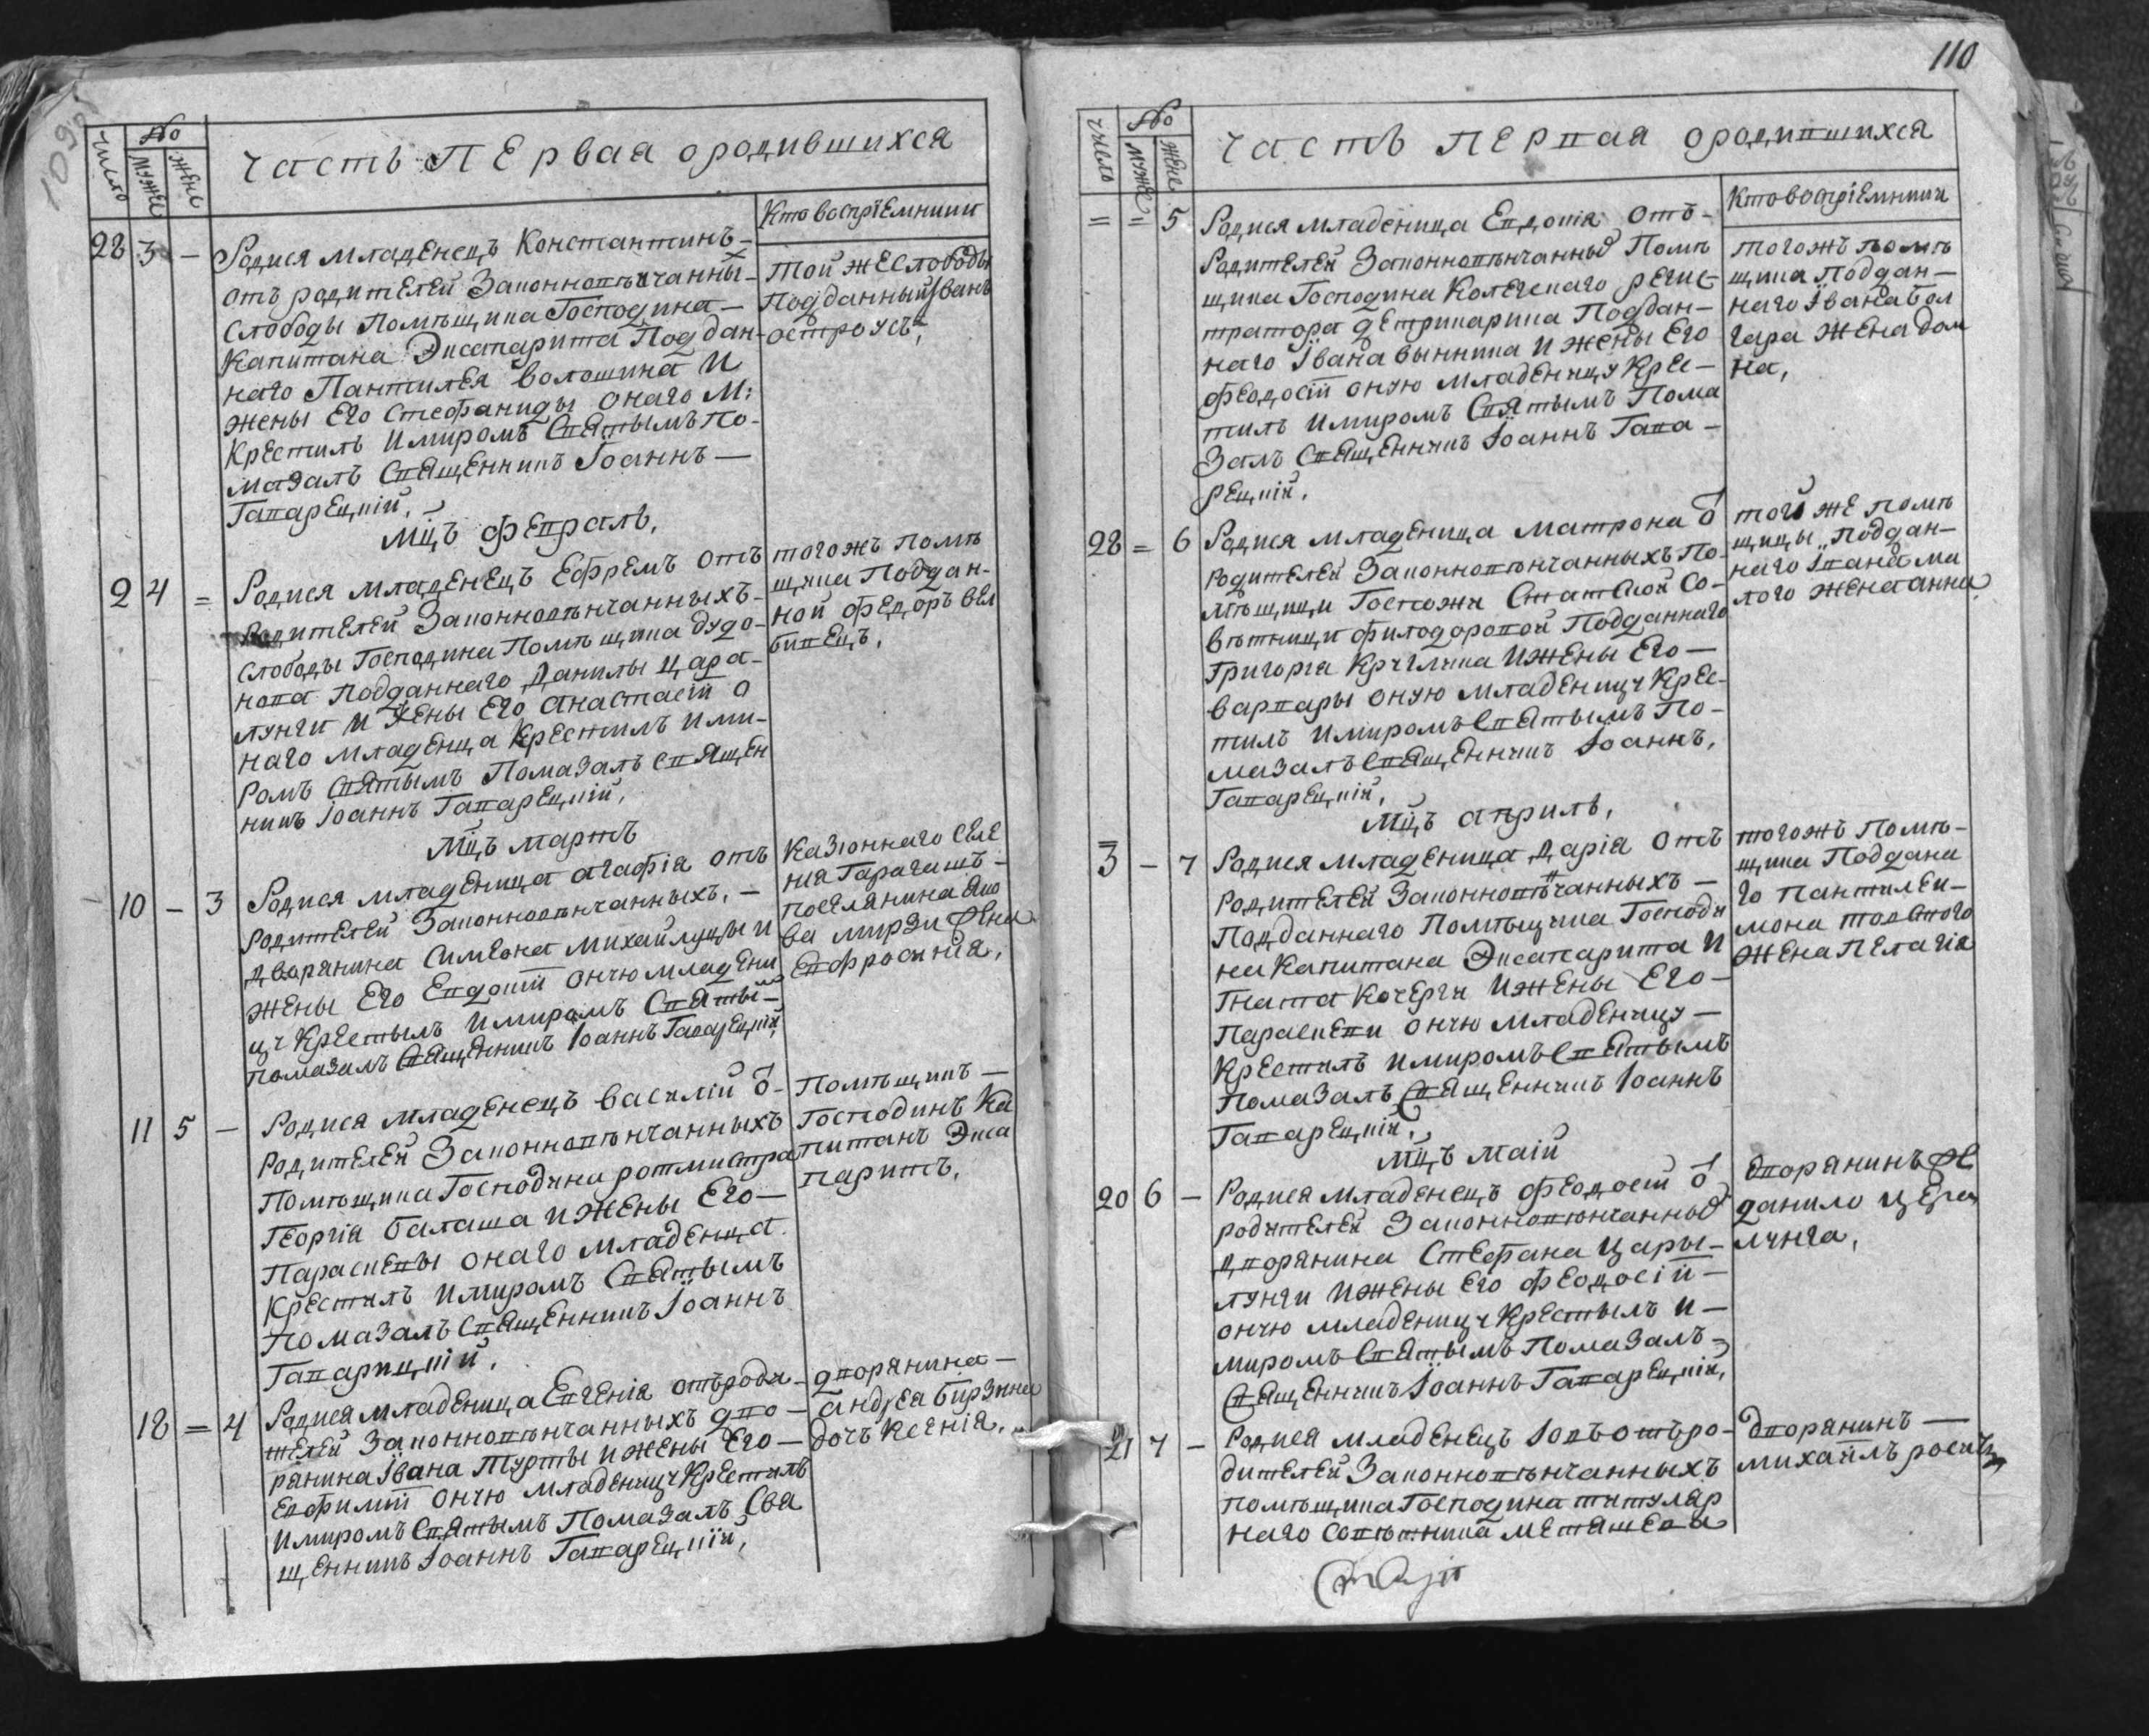 109
число
№
муже
жене
часть Первая о родившихся
Кто воспріемники
28 3 —
Родися младенецъ Константинъ —
отъ родителей Законновѣнчанны —
слободы Помѣщика Господина —
Капитана Эксапарита Поддан-
наго Пантилея Волошина и
жены Его Стефаниды онаго М:
Крестилъ и миромъ Святымъ по-
мазалъ Священникъ Іоаннъ —
Гапарецкій.
той же слободы
Подданный Іванъ
остроусъ,
Мцъ Февраль,
2 4 =
Родися младенецъ Ефремъ отъ
Родителей Законновѣнчанныхъ —
слободы Господина Помѣщика дудо-
нова Подданнаго Данилы цара-
лунги и жены Его Анастасіи о
наго младенца Крестилъ и ми-
ромъ Святымъ Помазалъ Священ
никъ Іоаннъ Гапарецкій,
тогожъ помѣ
щика Поддан-
ной Федоръ вел
бивецъ,
Мцъ Мартъ
10 — 3
Родися младеница Агафія отъ
родителей Законновѣнчанныхъ, —
Дворянина Симеона Михайлуцы и
жены Его Евдокіи оную младени
цу Крестылъ и миромъ Святы —
помазалъ Священникъ Іоаннъ Гапарецкій,
Казіоннаго селе
нія Гарагашъ —
поселянина Яко
ва мирзи жена
Евфросинія,
11 5 —
Родися младенецъ Василій о —
родителей Законновѣнчанныхъ
Помѣщика Господина ротмистра
Георгія Балаша и жены Его —
Параскевы онаго младенца
Крестилъ и миромъ Святымъ
помазалъ Священникъ Іоаннъ
Гапарицкій,
Помѣщикъ —
Господинъ Ка
питанъ Экса
паритъ,
18 = 4
Родися младеница Евгенія отъ роди-
телей Законновѣнчанныхъ дво —
рянина Івана Турты и жены Его —
Евфиміи оную младеницу Крестилъ
и миромъ Святымъ Помазалъ Свя
щенникъ Іоаннъ Гапарецкій,
дворянина —
Андрея Бирзина
дочъ Ксенія,
110
число
№
муже
жене
часть Первая о родившихся
Кто воспріемники
= = 5
Родися младеница Евдокія отъ —
Родителей Законновѣнчанны Помѣ
щика Господина Колегскаго регис-
тратора Поддан —
наго Івана винника и жены Его
Феодосіи оную младеницу Крес —
тилъ и миромъ Святымъ Пома
залъ Священникъ Іоаннъ Гапа —
рецкій,
тогожъ помѣ
щика Поддан —
наго Івана бол
гара жена дом
на,
28 = 6
Родися младеница Матрона о
родителей Законновѣнчанныхъ По-
мѣщици Госпожи Статской Со-
вѣтници Филодоровой Подданнаго
Григорія Круглика и жены Его —
варвары оную младеницу Крес-
тилъ и миромъ Святымъ По-
мазалъ Священникъ Іоаннъ,
Гапарецкій,
той же помѣ
щицы Поддан —
наго Івана ма
лого жена анна,
Мцъ Априль,
3 — 7
Родися младеница Дарія отъ
родителей Законновѣнчанныхъ —
Подданнаго Помѣщика Господи
на Капитана Эксапарита И
гната Кочерги и жены Его —
Параскеви оную младеницу —
Крестилъ и миромъ Святымъ
помазалъ Священникъ Іоаннъ
Гапарецкій,
тогожъ помѣ-
щика Поддана
го Пантилеи —
мона
жена Пелагія
Мцъ Маій
20 6 —
Родися младенецъ Феодосій о
родителей Законновѣнчанны
Дворянина Стефана Цары-
лунги и жены Его Феодосіи —
оную младеницу Крестылъ и —
миромъ Святымъ помазалъ —
Священникъ Іоаннъ Гапарецкій,
дворянинъ
данило цера
лунга,
21 7 —
Родися младенецъ Іовъ отъ ро-
дителей Законновѣнчанныхъ
помѣщика Господина титуляр
наго Совѣтника Метяшева
дворянинъ —
михайлъ